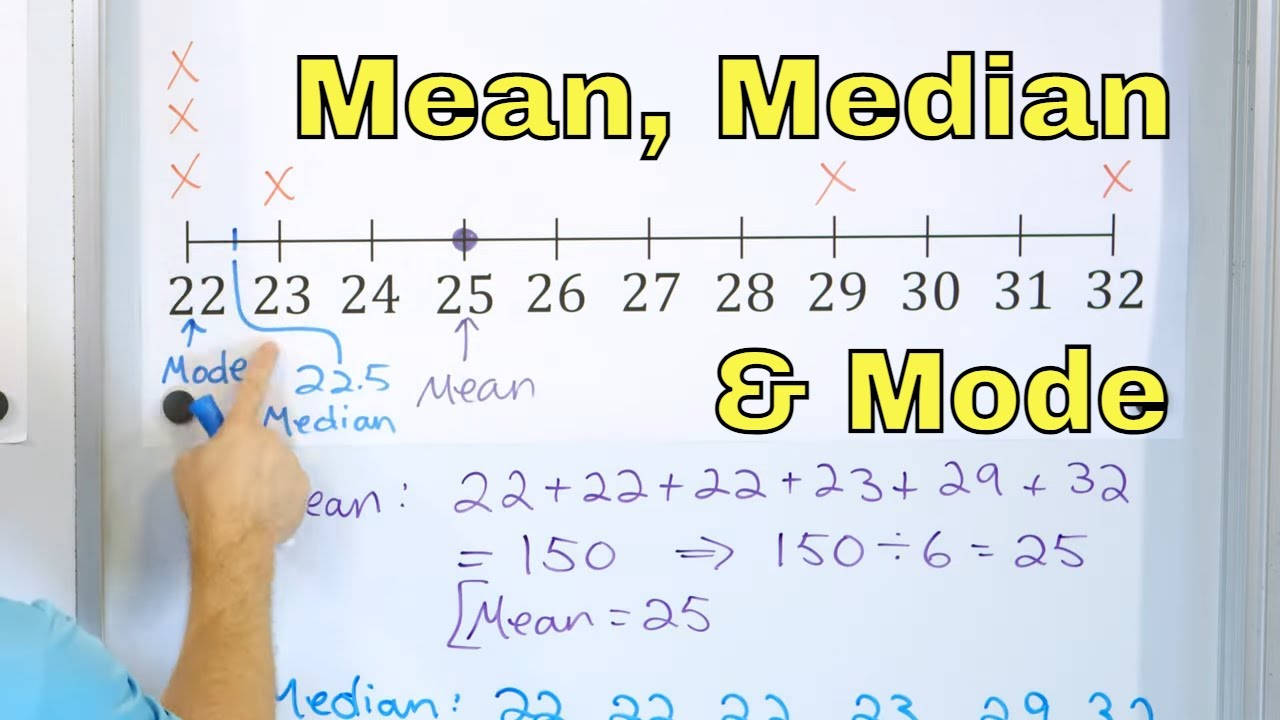 Mean, Median
X
X
X X X X
22 23 24 25 26 27 28 29 30 31 32
Mode 22.5 Mean
Median
& Mode
ean: 22+22+22+23+29+32
= 150 ⇒ 150÷6=25
[Mean = 25
Median: 22 22 22 23 29 32